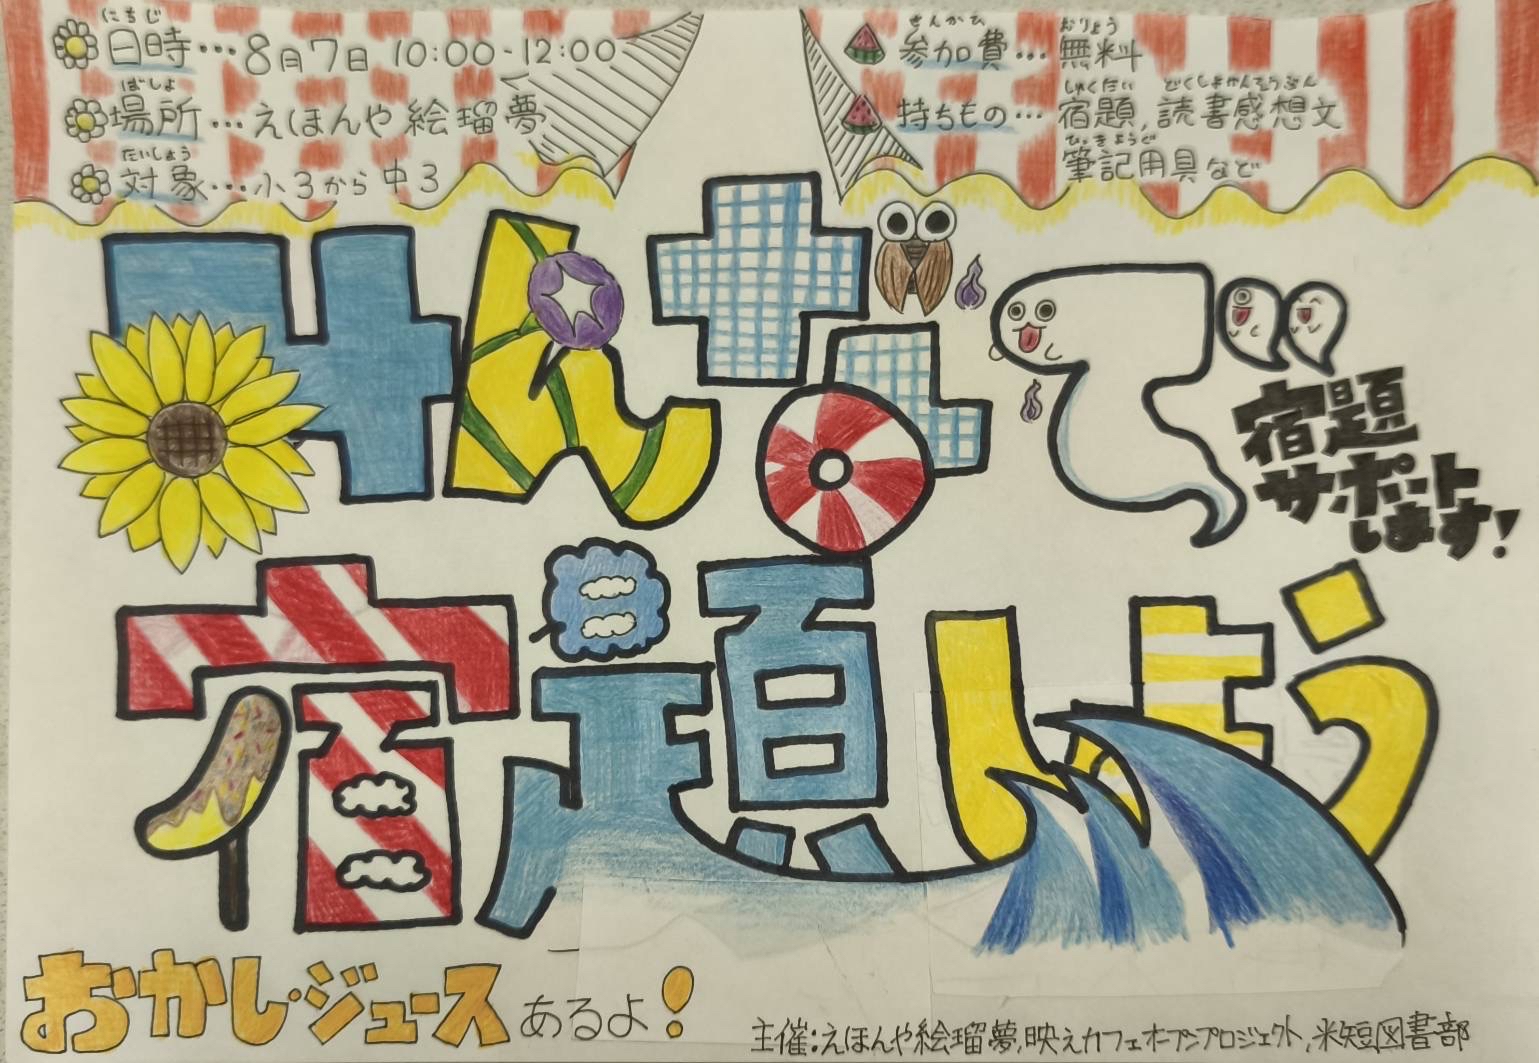 にちじ
日時…8月7日 10:00-12:00
ばしょ
場所…えほんや絵瑠夢
たいしょう
対象…小3から中3
さんかひ おりょう
参加費…無料
しゅくだい どくしょかんそうぶん
持ちもの…宿題,読書感想文
ひっきようど
筆記用具など
みんなで
宿題
サポート
します!
宿題しよう
おかし・ジュースあるよ!
主催:えほんや絵瑠夢,映えカフェオープンプロジェクト,米短図書部